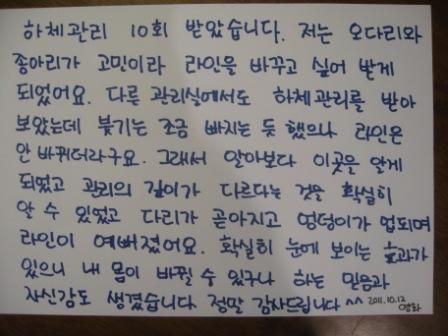 하체관리 10회 받았습니다. 저는 오다리와
종아리가 고민이라 라인을 바꾸고 싶어 받게
되었어요. 다른 관리실에서도 하체관리를 받아
보았는데 붓기는 조금 빠지는 듯 했으나 라인은
안 바뀌더라구요. 그래서 알아보다 이곳을 알게
되었고 관리의 깊이가 다르다는 것을 확실히
알 수 있었고 다리가 곧아지고 엉덩이가 업되며
라인이 예뻐졌어요. 확실히 눈에 보이는 효과가
있으니 내 몸이 바뀔 수 있구나 하는 믿음과
자신감도 생겼습니다. 정말 감사드립니다 ^^ 2011.10.12